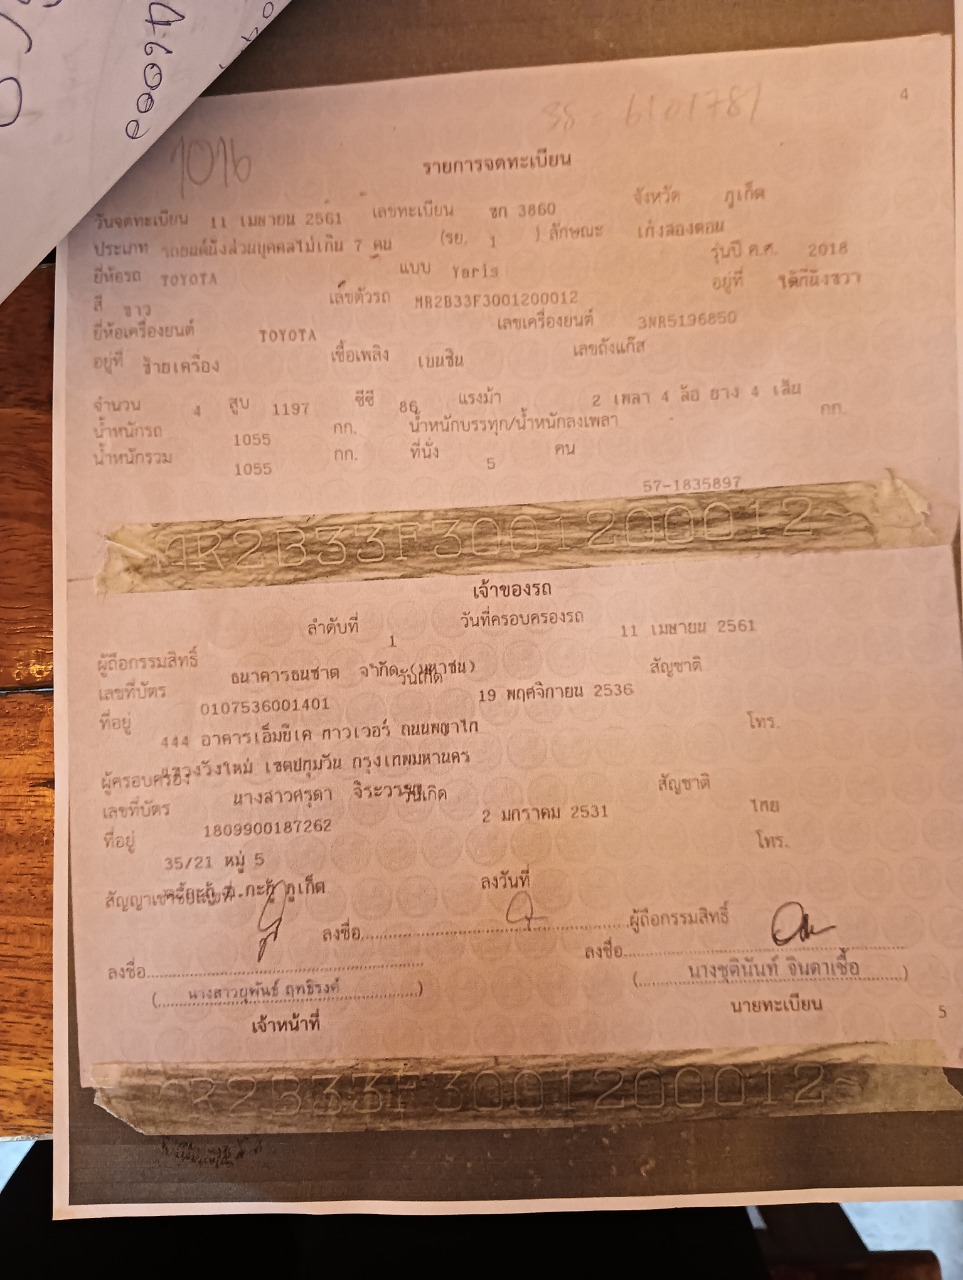 46000
4
38-6101781
1016
รายการจดทะเบียน
วันจดทะเบียน 11 เมษายน 2561 เลขทะเบียน ขก 3860 จังหวัด ภูเก็ต
ประเภท รถยนต์นั่งส่วนบุคคลไม่เกิน 7 คน (รย. 1 ) ลักษณะ เก๋งสองตอน
ยี่ห้อรถ TOYOTA แบบ Yaris รุ่นปี ค.ศ. 2018
สี ขาว เลขตัวรถ MR2B33F3001200012 อยู่ที่ ใต้ที่นั่งขวา
ยี่ห้อเครื่องยนต์ TOYOTA เลขเครื่องยนต์ 3NR5196850
อยู่ที่ ซ้ายเครื่อง เชื้อเพลิง เบนซิน เลขถังแก๊ส
จำนวน 4 สูบ 1197 ซีซี 86 แรงม้า 2 เพลา 4 ล้อ ยาง 4 เส้น
น้ำหนักรถ 1055 กก. น้ำหนักบรรทุก/น้ำหนักลงเพลา กก.
น้ำหนักรวม 1055 กก. ที่นั่ง 5 คน
57-1835897
MR2B33F3001200012
เจ้าของรถ
ลำดับที่ 1 วันที่ครอบครองรถ 11 เมษายน 2561
ผู้ถือกรรมสิทธิ์ ธนาคารธนชาต จำกัด (มหาชน)
เลขที่บัตร 0107536001401 วันเกิด 19 พฤศจิกายน 2536 สัญชาติ
ที่อยู่ 444 อาคารเอ็มบีเค ทาวเวอร์ ถนนพญาไท โทร.
แขวงวังใหม่ เขตปทุมวัน กรุงเทพมหานคร
ผู้ครอบครอง นางสาวศรุดา
เลขที่บัตร 1809900187262 วันเกิด 2 มกราคม 2531 สัญชาติ ไทย
ที่อยู่ 35/21 หมู่ 5 โทร.
อ.กะทู้ ภูเก็ต
สัญญาเช่าซื้อเลขที่ ลงวันที่
ลงชื่อ ผู้ถือกรรมสิทธิ์
ลงชื่อ ลงชื่อ
(นางสาวยุพันธ์ ฤทธิรงค์) (นางชุตินันท์ จินดาเชื้อ)
เจ้าหน้าที่ นายทะเบียน
5
R2B33F3001200012